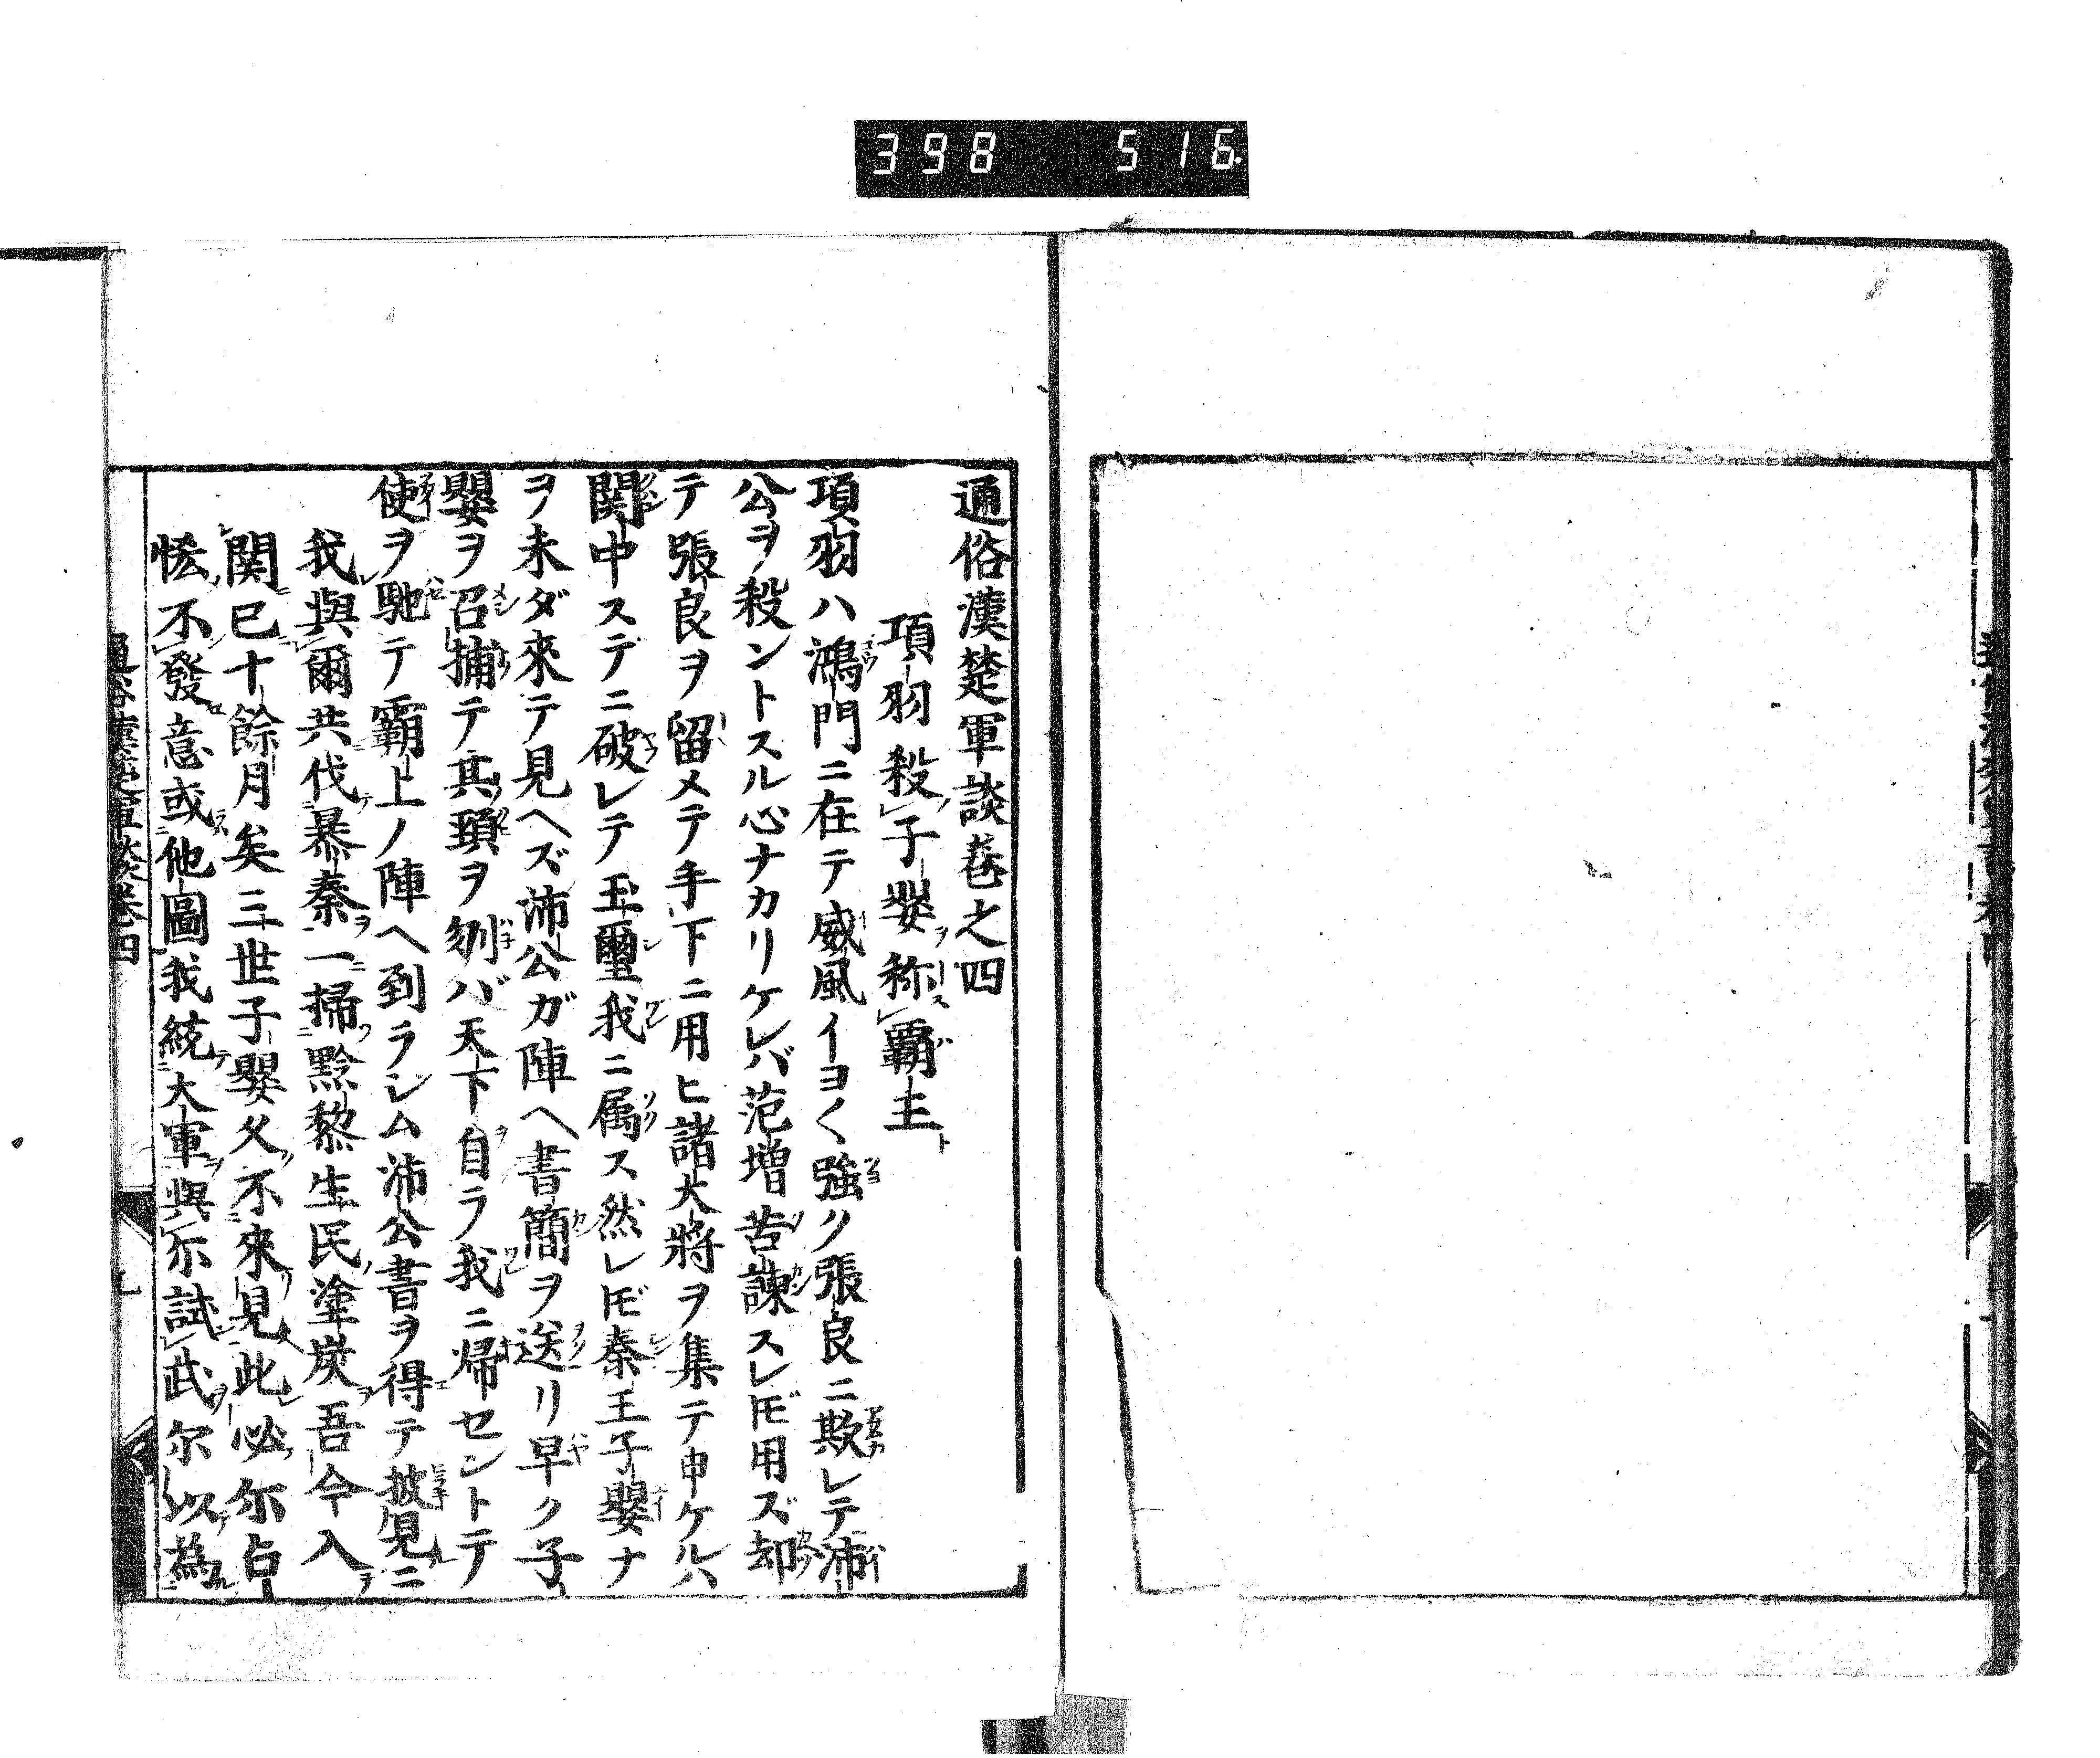 398 516
通俗漢楚軍談巻之四
項羽殺子嬰称覇王
項羽ハ鴻門ニ在テ威風イヨ〱強ク張良ニ欺レテ沛
公ヲ殺ントスル心ナカリケレバ范増苦諫スレ𪜈用ズ却
テ張良ヲ留メテ手下ニ用ヒ諸大將ヲ集テ申ケルハ
関中ステニ破レテ玉璽我ニ属ス然レ𪜈秦王子嬰ナ
ヲ未ダ來テ見ヘズ沛公ガ陣ヘ書簡ヲ送リ早ク子
嬰ヲ召捕テ其頭ヲ刎バ天下自ラ我ニ帰センドテ
使ヲ馳テ覇上ノ陣ヘ到ラシム沛公書ヲ得テ披見ニ
我與爾共伐暴秦一掃黔黎生民塗炭吾今入
関已十餘月矣三世子嬰久不來見此必尓占
恡不發意或他圖我統大軍與尓試武尓以為